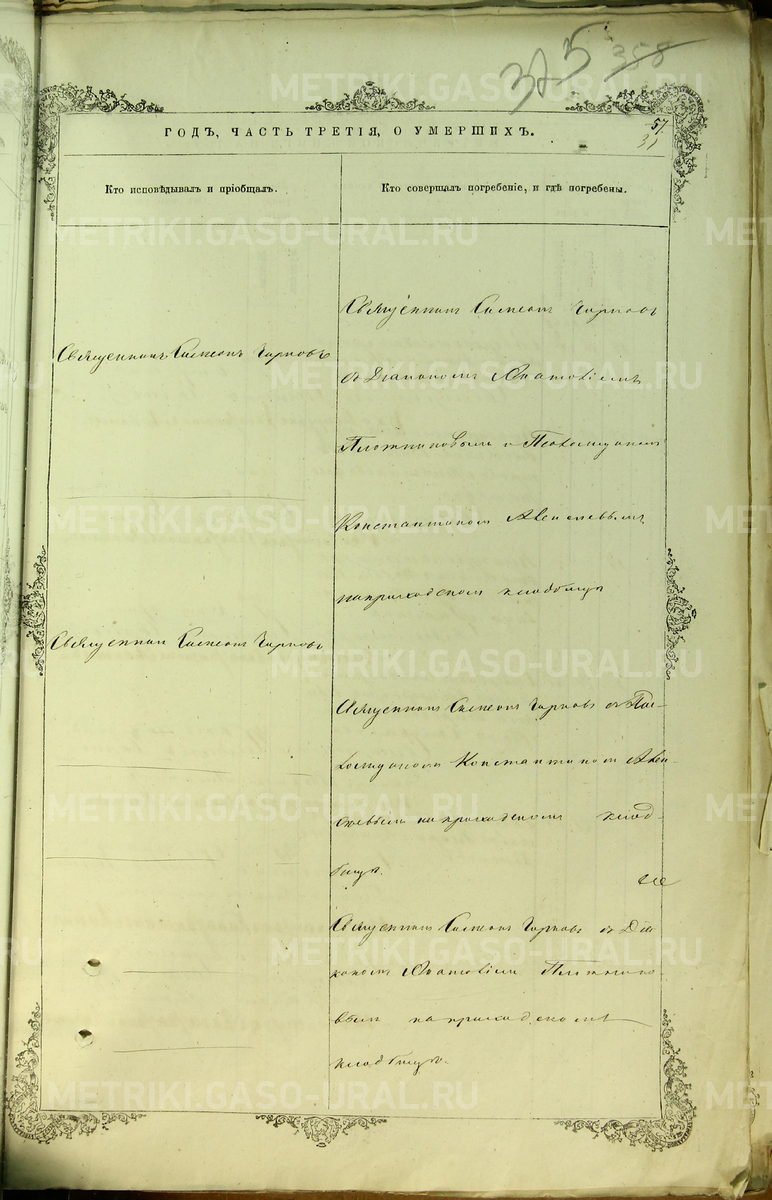 375 358
57
31
ГОДЪ, ЧАСТЬ ТРЕТІЯ, О УМЕРШИХЪ.
Кто исповѣдывалъ и пріобщалъ.
Кто совершалъ погребеніе, и гдѣ погребены.
Священникъ Симеонъ Чирковъ
Священникъ Симеонъ Чирковъ
Священникъ Симеонъ Чирковъ
съ Діакономъ
Плотниковымъ и Псаломщикомъ
Константиномъ Алексѣевымъ
на приходскомъ кладбищѣ
Священникъ Симеонъ Чирковъ съ Пса-
ломщикомъ Константиномъ Алек-
сѣевымъ на приходскомъ клад-
бищѣ.
Священникъ Симеонъ Чирковъ съ Діа-
кономъ Плотнико-
вымъ на приходскомъ
кладбищѣ.
METRIKI.GASO-URAL.RU